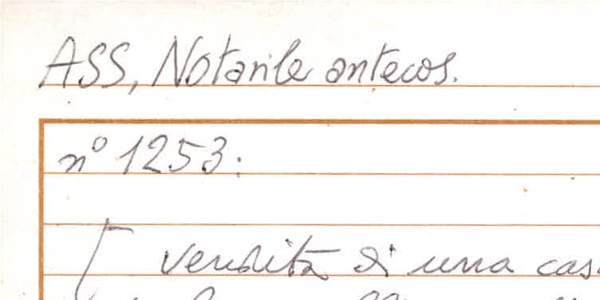 ASS, Notarile antecos.
n° 1253:
[ vendita di una cas